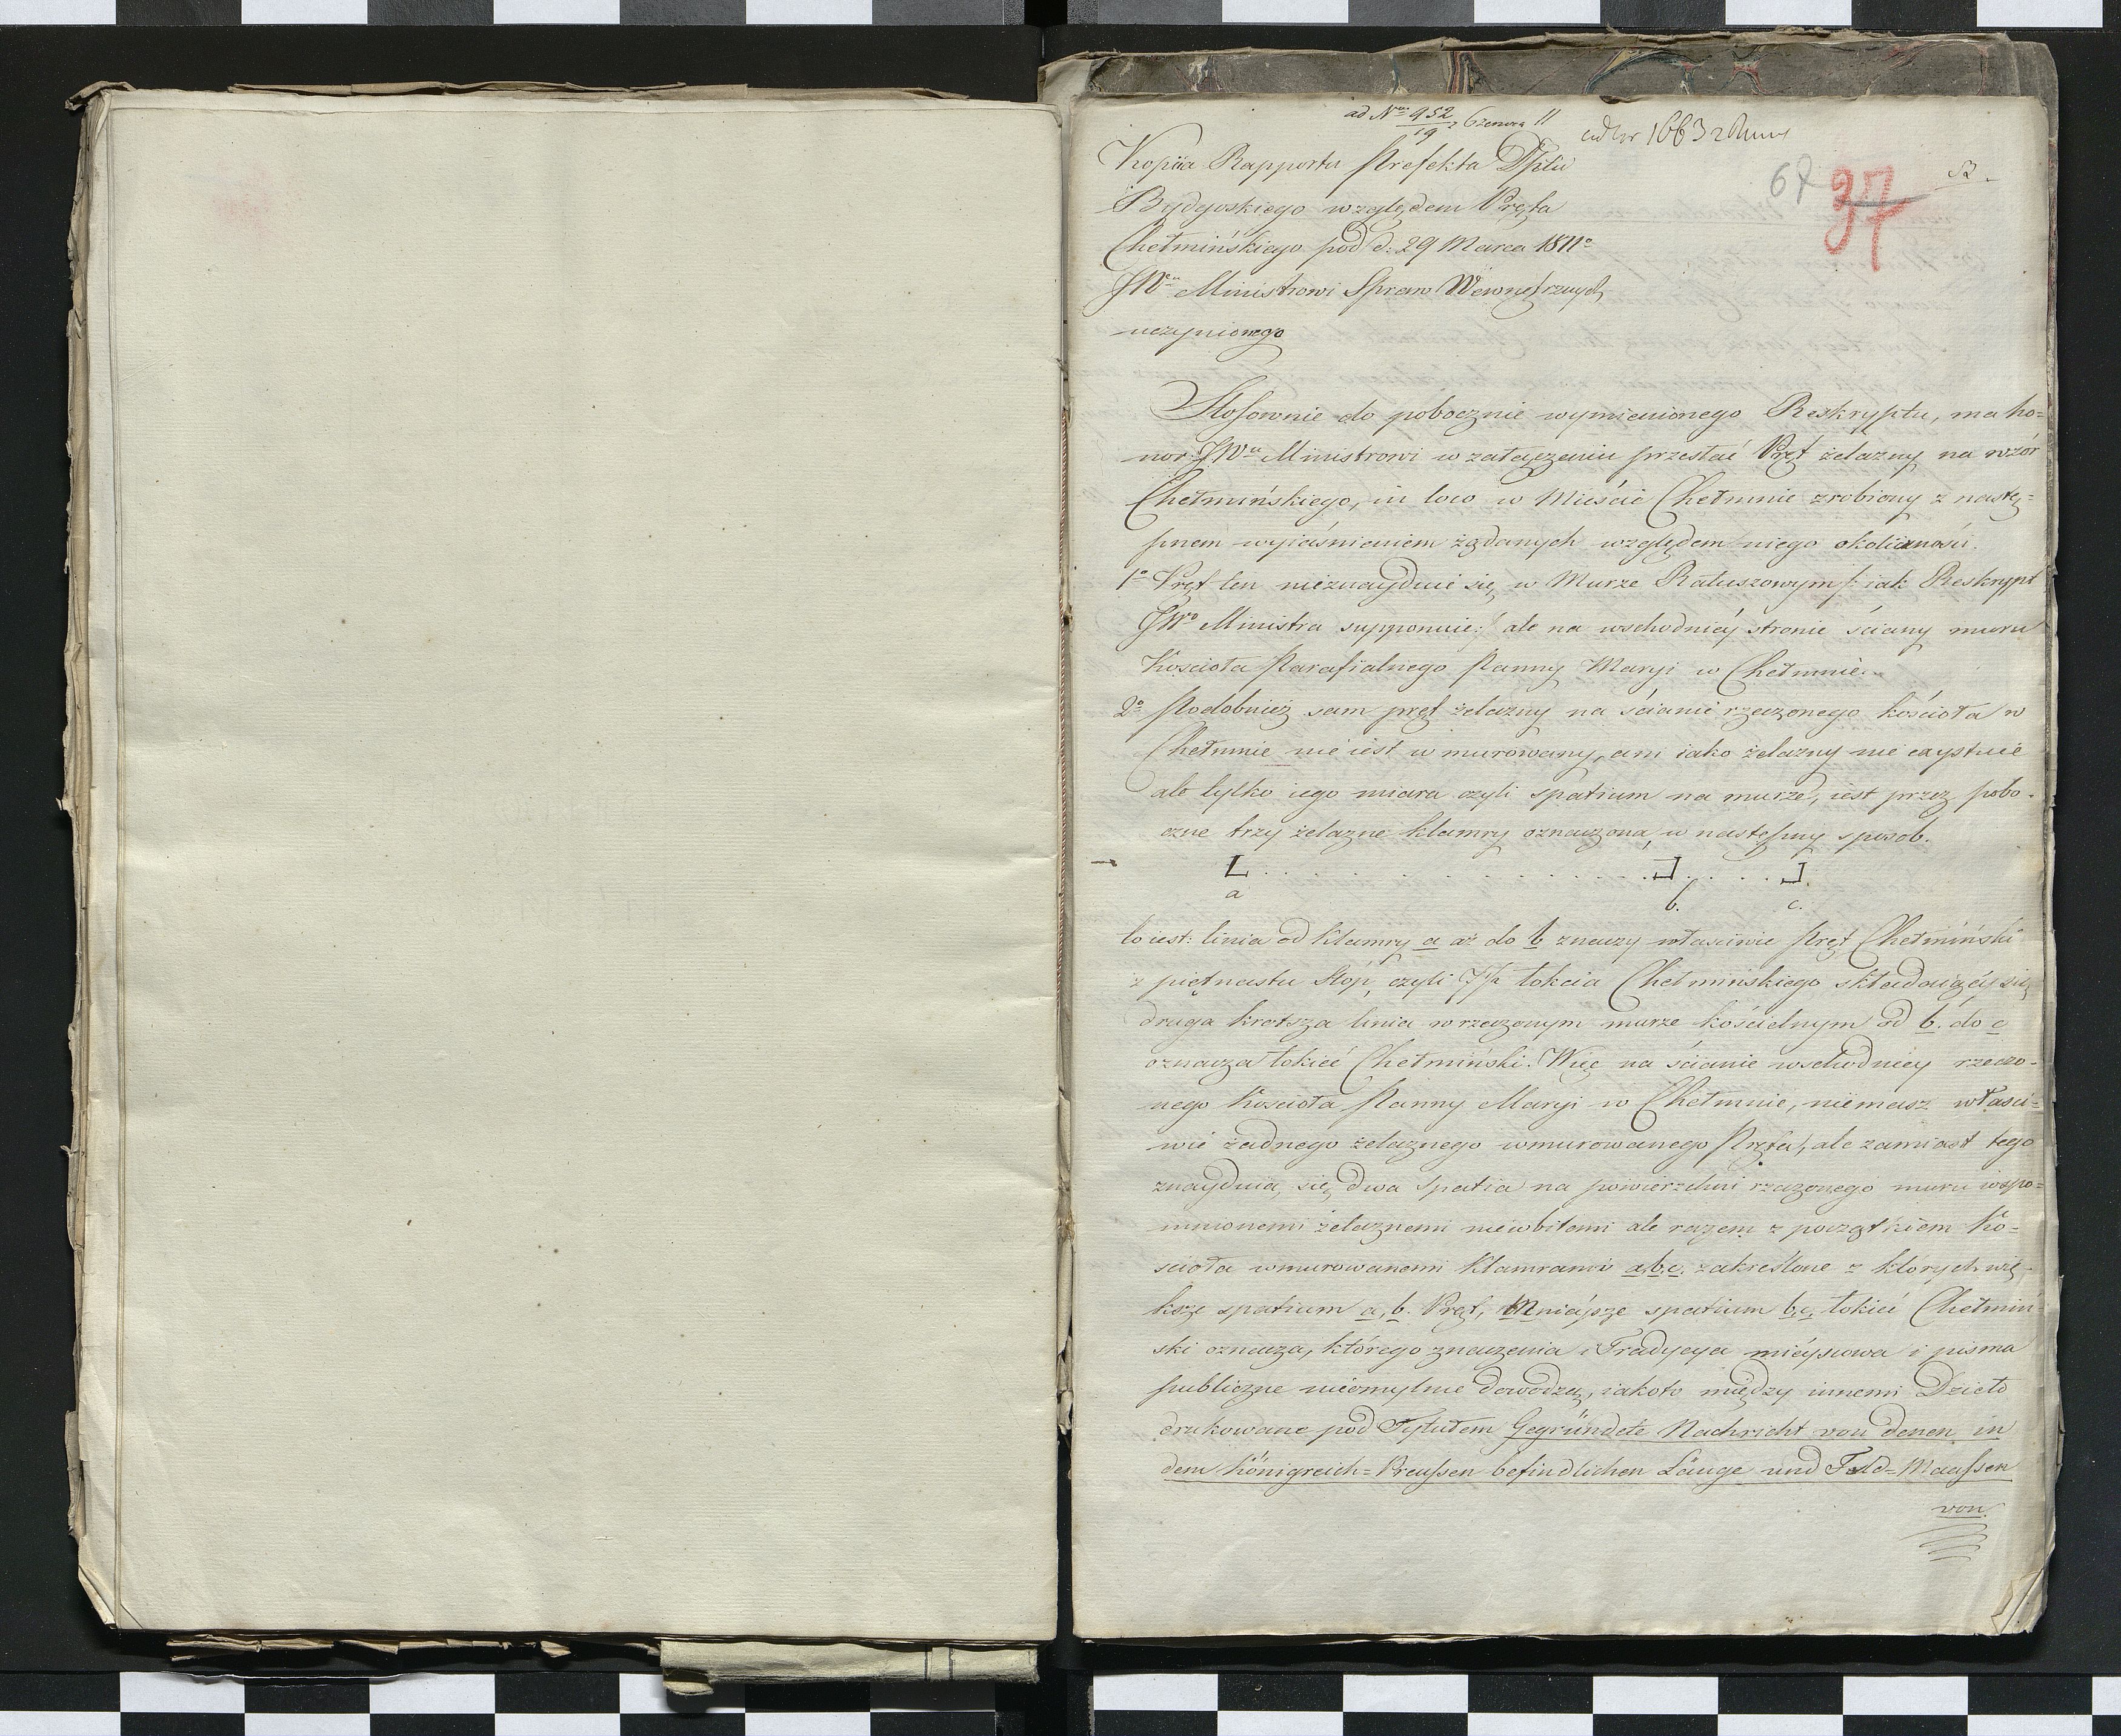 ad Nrum 952/19 z Czerwca 11
ad Nr 1663
67 37 R.
Kopiia Rapportu Prefekta Dptu
Bydgoskiego względem Pręta
Chełmińskiego pod d. 29 Marca 1811o
JWu Ministrowi Spraw Wewnętrznych
uczynionego
Stosownie do pobocznie wymienionego Reskryptu, ma ho=
nor JWu Ministrowi w załączeniu przesłać Pręt żelazny na wzór
Chełmińskiego, in loco w Mieście Chełmnie zrobiony z nastę=
pnem wyiaśnieniem żądanych względem niego okoliczności.
1o Pręt ten nieznayduie się w Murze Ratuszowym /: iak Reskrypt
JWo Ministra supponuie :/ ale na wschodniéy stronie ściany muru
Kościoła Parafialnego Panny Maryi w Chełmnie.
2o Podobnież sam pręt żelazny na ścianie rzeczonego kościoła w
Chełmnie nie iest wmurowany, ani iako żelazny nie exystuie
ale tylko iego miara czyli spatium na murze, iest przez pobo-
czne trzy żelazne klamry oznaczona, w następny sposob.
a b. c.
to iest: linia od klamry a aż do b znaczy właściwie Pręt Chełmiński
z piętnastu Stóp, czyli 7½ łokcia Chełmińskiego składaiący się
druga krotsza linia w rzeczonym murze kościelnym od b. do c
oznacza łokieć Chełmiński. Więc na ścianie wschodniey rzeczo-
nego Kościoła Panny Maryi w Chełmnie, niemasz właści=
wie żadnego żelaznego wmurowanego Pręta, ale zamiast tego
znayduią się dwa Spatia na powierzchni rzeczonego muru wspo=
mnionemi żelaznemi niewbitemi ale razem z początkiem Ko=
ścioła wmurowanemi Klamrami a,b,c. zakreślone z których wię-
ksze spatium a, b. Pręt, Mniéjsze spatium b,c, łokieć Chełmiń=
ski oznacza, którego znaczenia i Tradycya miéyscowa i pisma
publiczne nieomylnie dowodzą, iakoto między innemi Dzieło
drukowane pod Tytułem Gegründete Nachricht von denen in
dem Königreich=Preußen befindlichen Länge und Feld=Maaßen
von.